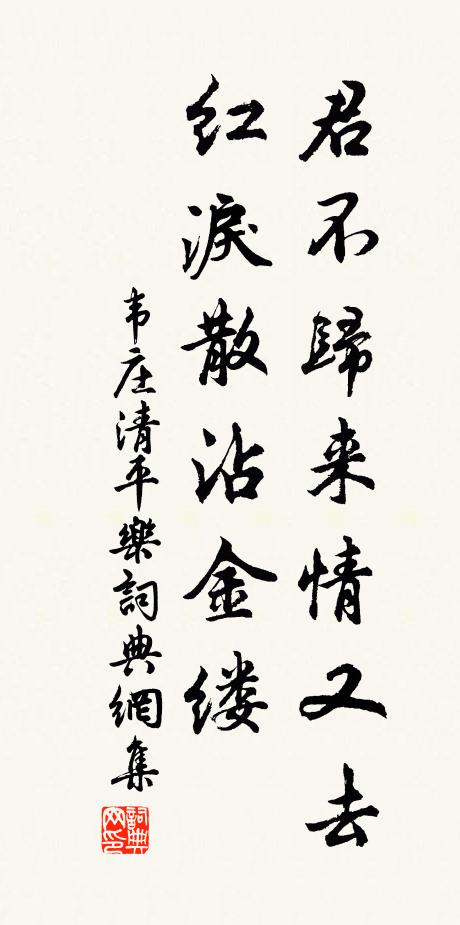 君不歸来情又去
红淚散沾金缕
韦庄清平樂詞典網集
詞典
网印